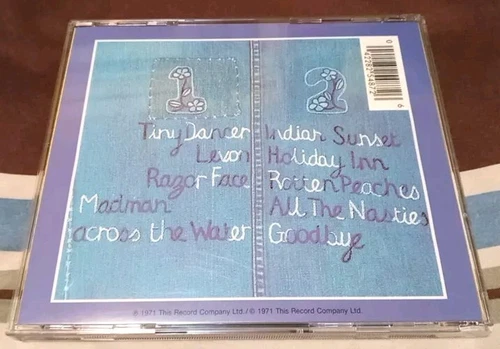 1
Tiny Dancer
Levon
Razor Face
Madman
across the Water
2
Indian Sunset
Holiday Inn
Rotten Peaches
All The Nasties
Goodbye
0 42282 54872 6
℗ 1971 This Record Company Ltd. / © 1971 This Record Company Ltd.